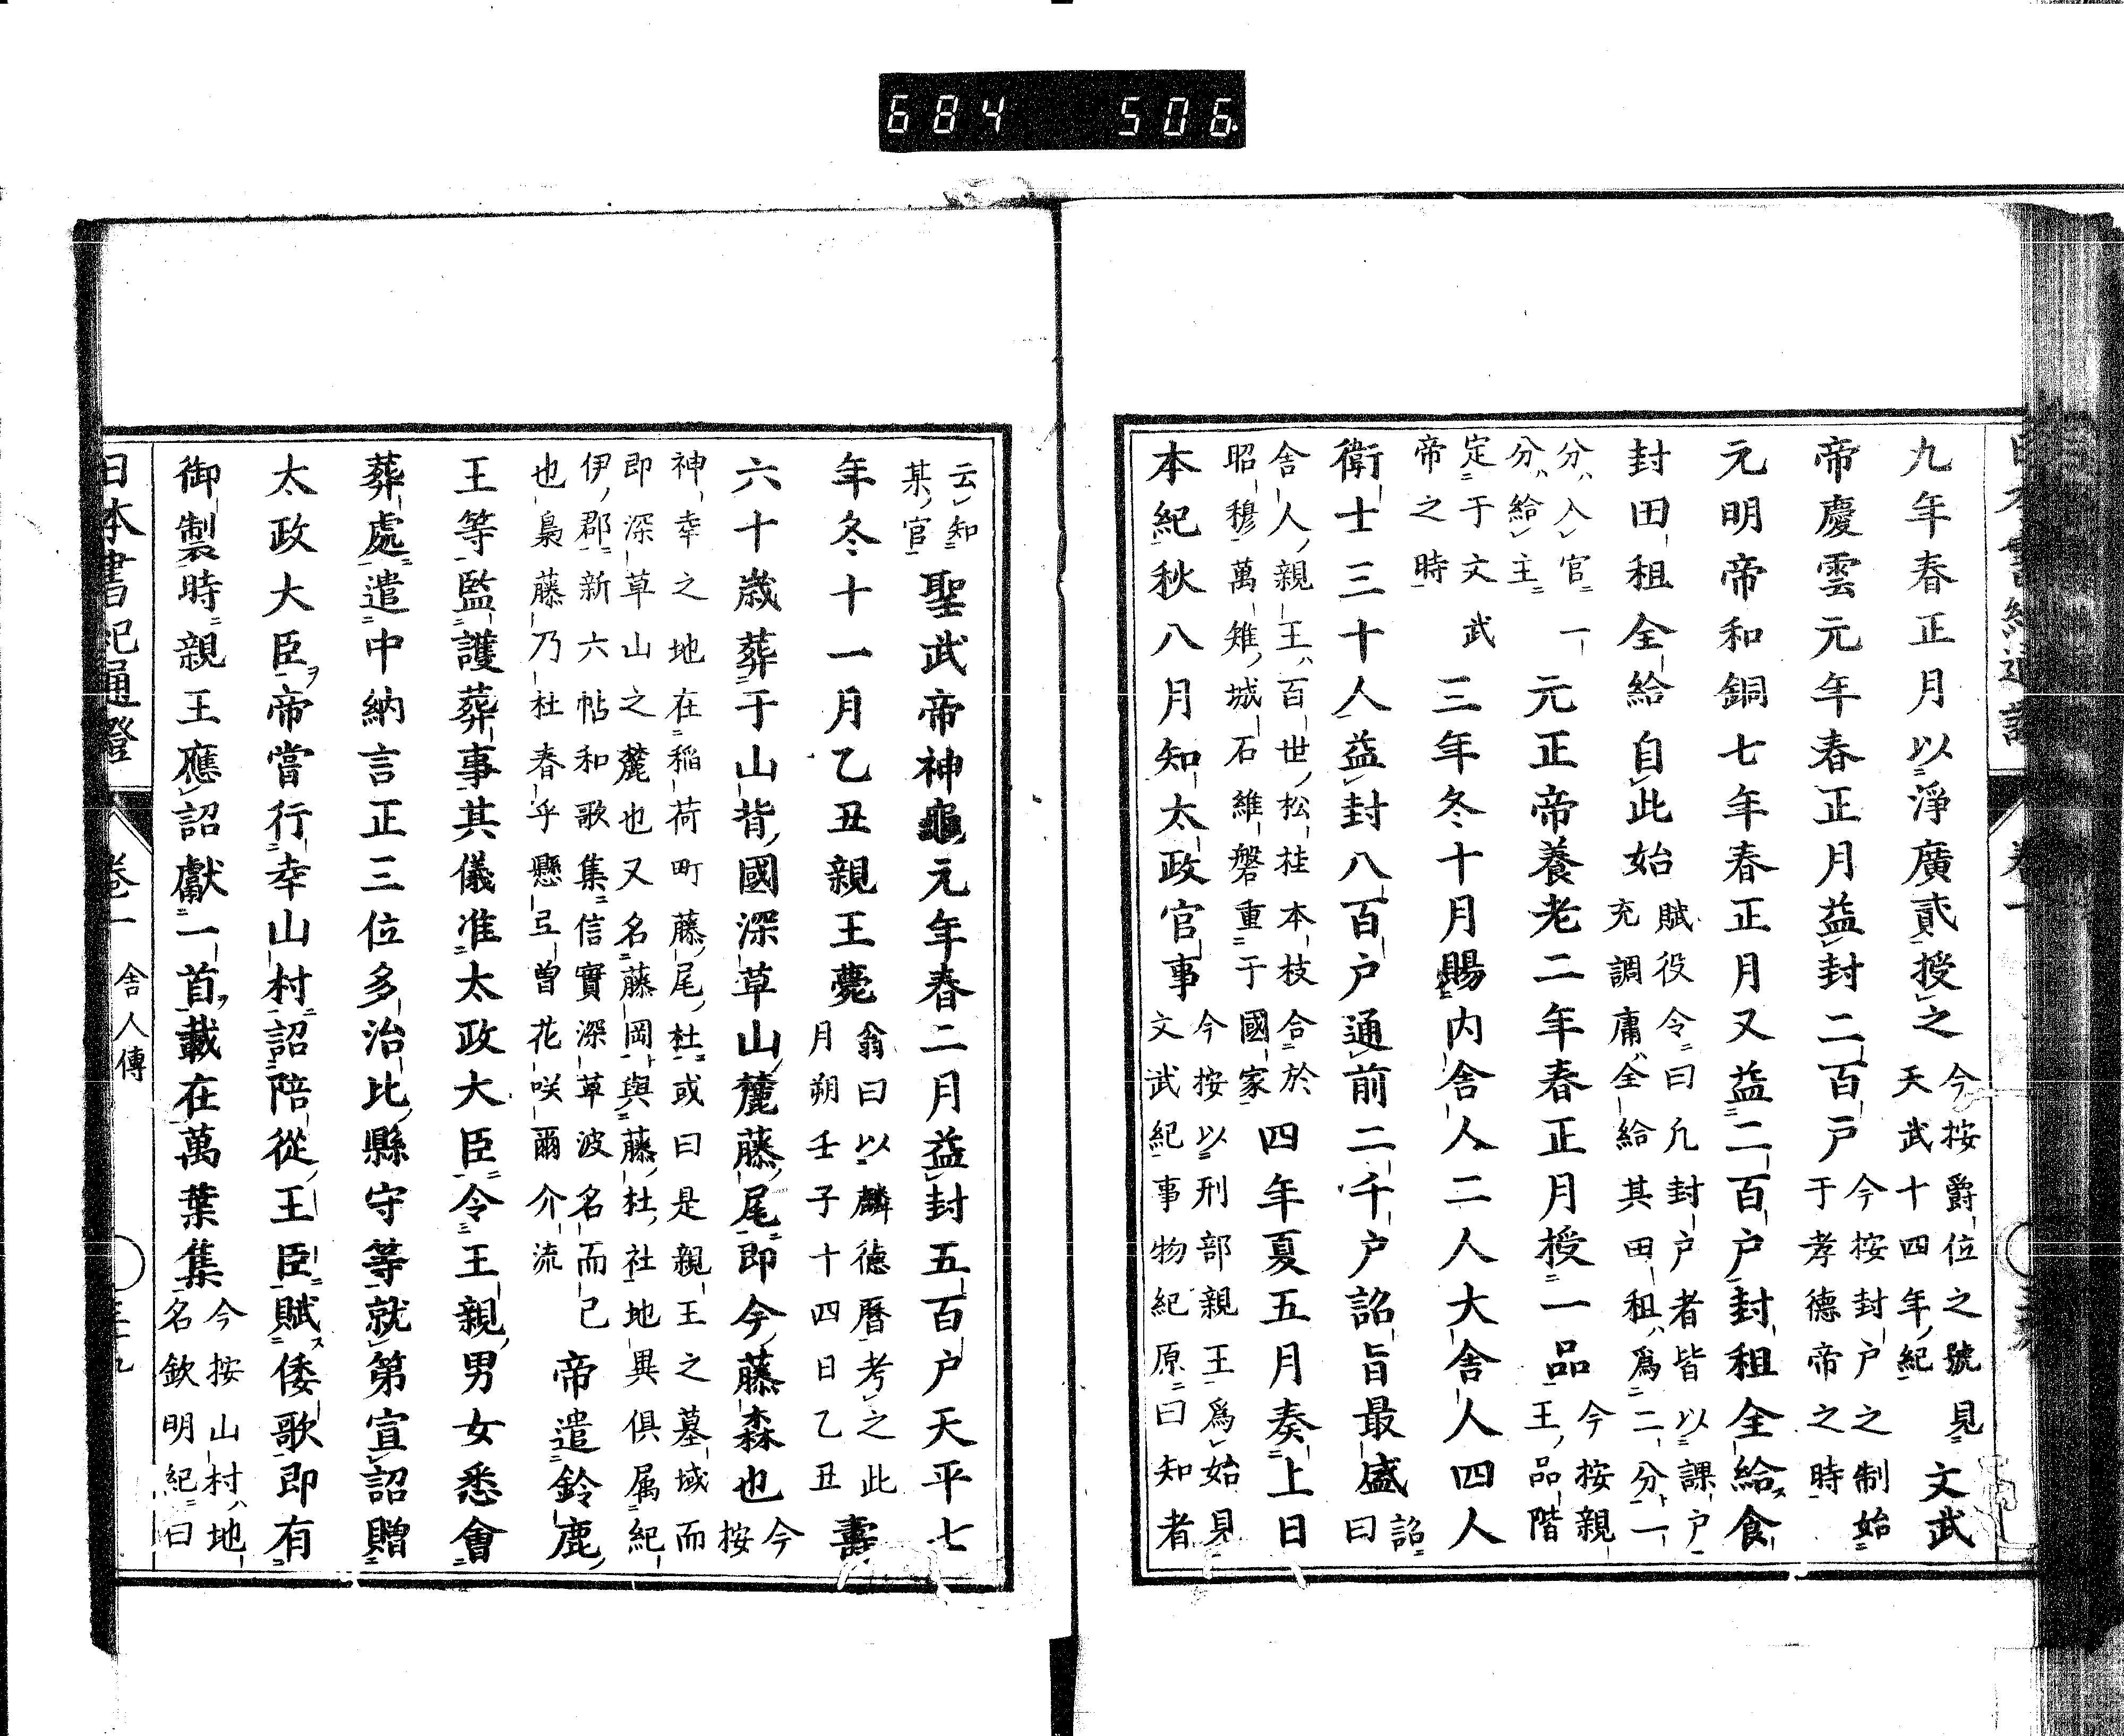 684 506
九年春正月以淨廣貳授之今按爵位之號見天武十四年紀文武
帝慶雲元年春正月益封二百戸今按封戸之制始于孝德帝之時
元明帝和銅七年春正月又益二百戸封租全給食
封田租全給自此始賦役令曰凡封戸者皆以課戸充調庸全給其田租爲二分一
分入官一分給主元正帝養老二年春正月授一品今按親王品階
定于文武帝之時三年冬十月賜内舍人二人大舍人四人
衛士三十人益封八百戸通前二千戸詔旨最盛詔曰
舍人親王百世松桂本枝合於昭穆萬雉城石維磐重于國家四年夏五月奏上日
本紀秋八月知太政官事今按以刑部親王爲始見文武紀事物紀原曰知者
云知某官聖武帝神龜元年春二月益封五百戸天平七
年冬十一月乙丑親王薨翁曰以麟德曆考之此月朔壬子十四日乙丑壽
六十歲葬于山背國深草山麓藤尾即今藤森也今按
神幸之地在稲荷町藤尾杜或曰是親王之墓域而即深草山之麓也又名藤岡與藤杜社地異俱属紀
伊郡新六帖和歌集信實深草波名而已也梟藤乃杜春乎懸弖曽花咲爾介流帝遣鈴鹿
王等監護葬事其儀准太政大臣令王親男女悉會
葬處遣中納言正三位多治比縣守等就第宣詔贈
太政大臣帝嘗行幸山村詔陪從王臣賦倭歌即有
御製時親王應詔獻一首載在萬葉集今按山村地名欽明紀曰
日本書紀通證 卷一 舍人傳